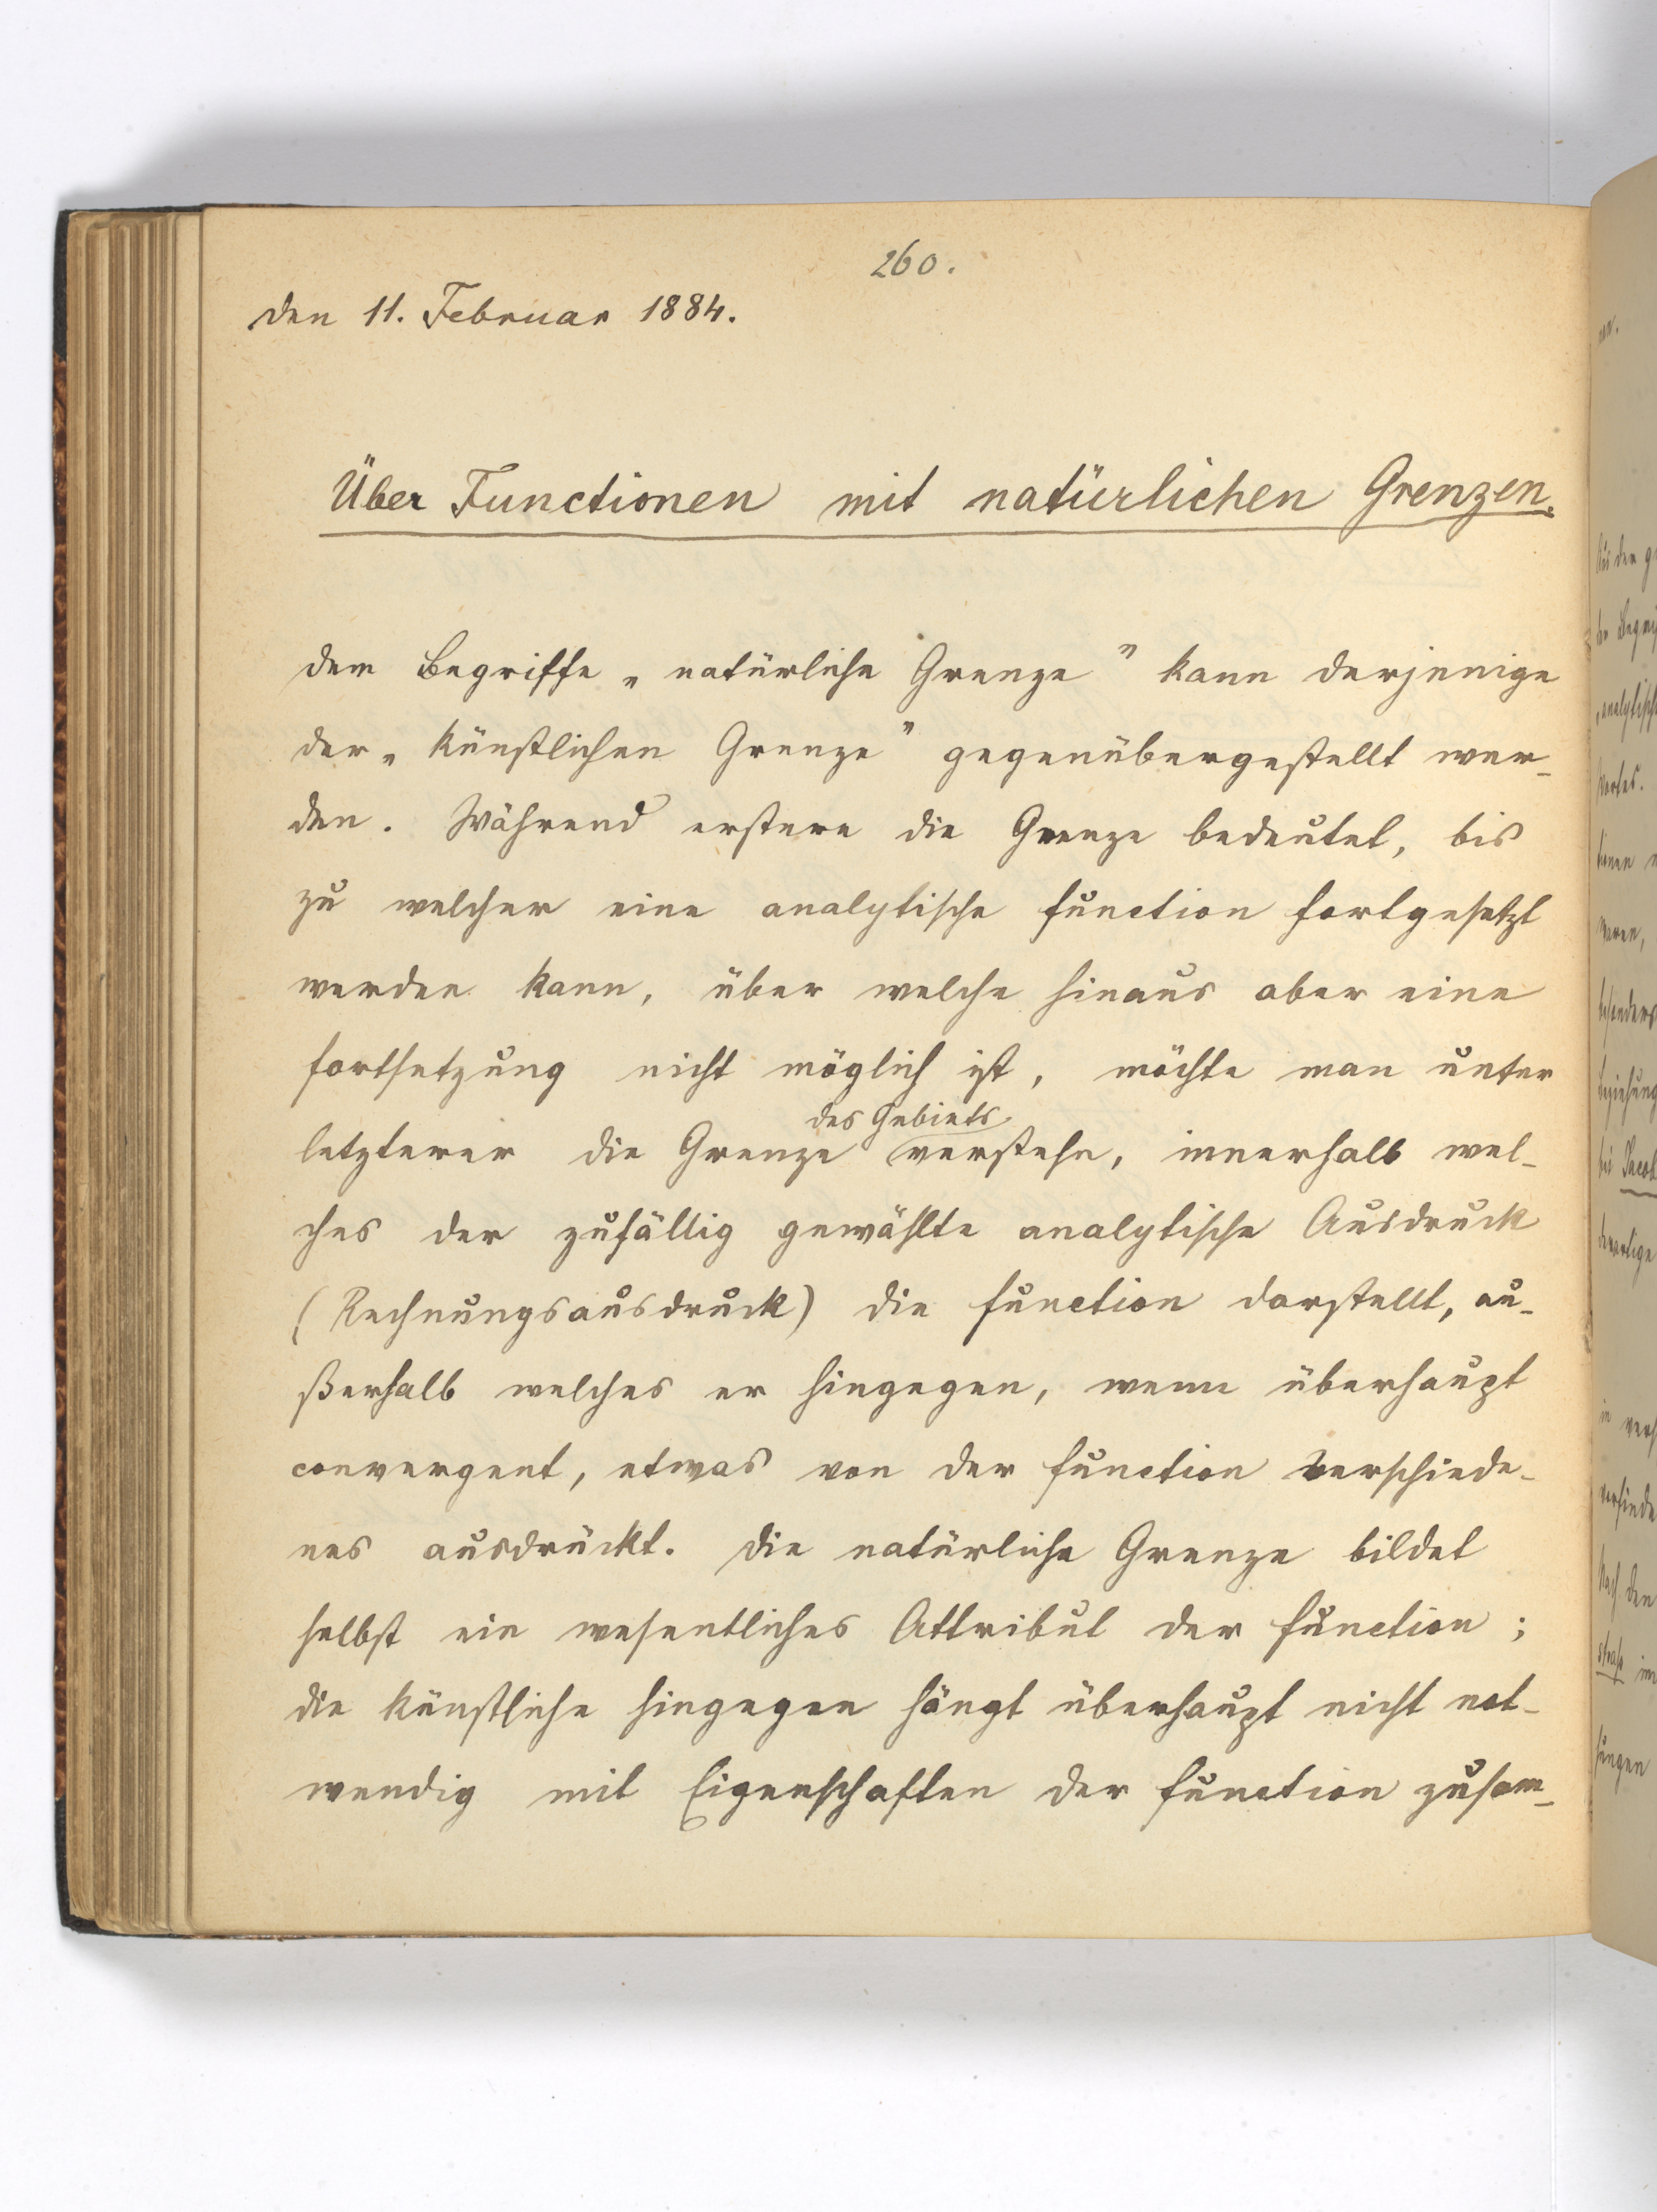 260.
den 11. Februar 1884.
Über Functionen mit natürlichen Grenzen.
dem Begriffe „natürliche Grenze" kann derjenige
der „künstlichen Grenze" gegenübergestellt wer-
den. Während erstere die Grenze bedeutet, bis
zu welcher eine analytische Function fortgesetzt
werden kann, über welche hinaus aber eine
Fortsetzung nicht möglich ist, möchte man unter
des Gebiets
letzterer die Grenze verstehn, innerhalb wel-
ches der zufällig gewählte analytische Ausdruck
(Rechnungsausdruck) die Function darstellt, au-
ßerhalb welches er hingegen, wenn überhaupt
convergent, etwas von der Function Verschiede-
nes ausdrückt. Die natürliche Grenze bildet
selbst ein wesentliches Attribut der Function;
die künstliche hingegen hängt überhaupt nicht not-
wendig mit Eigenschaften der Function zusam-